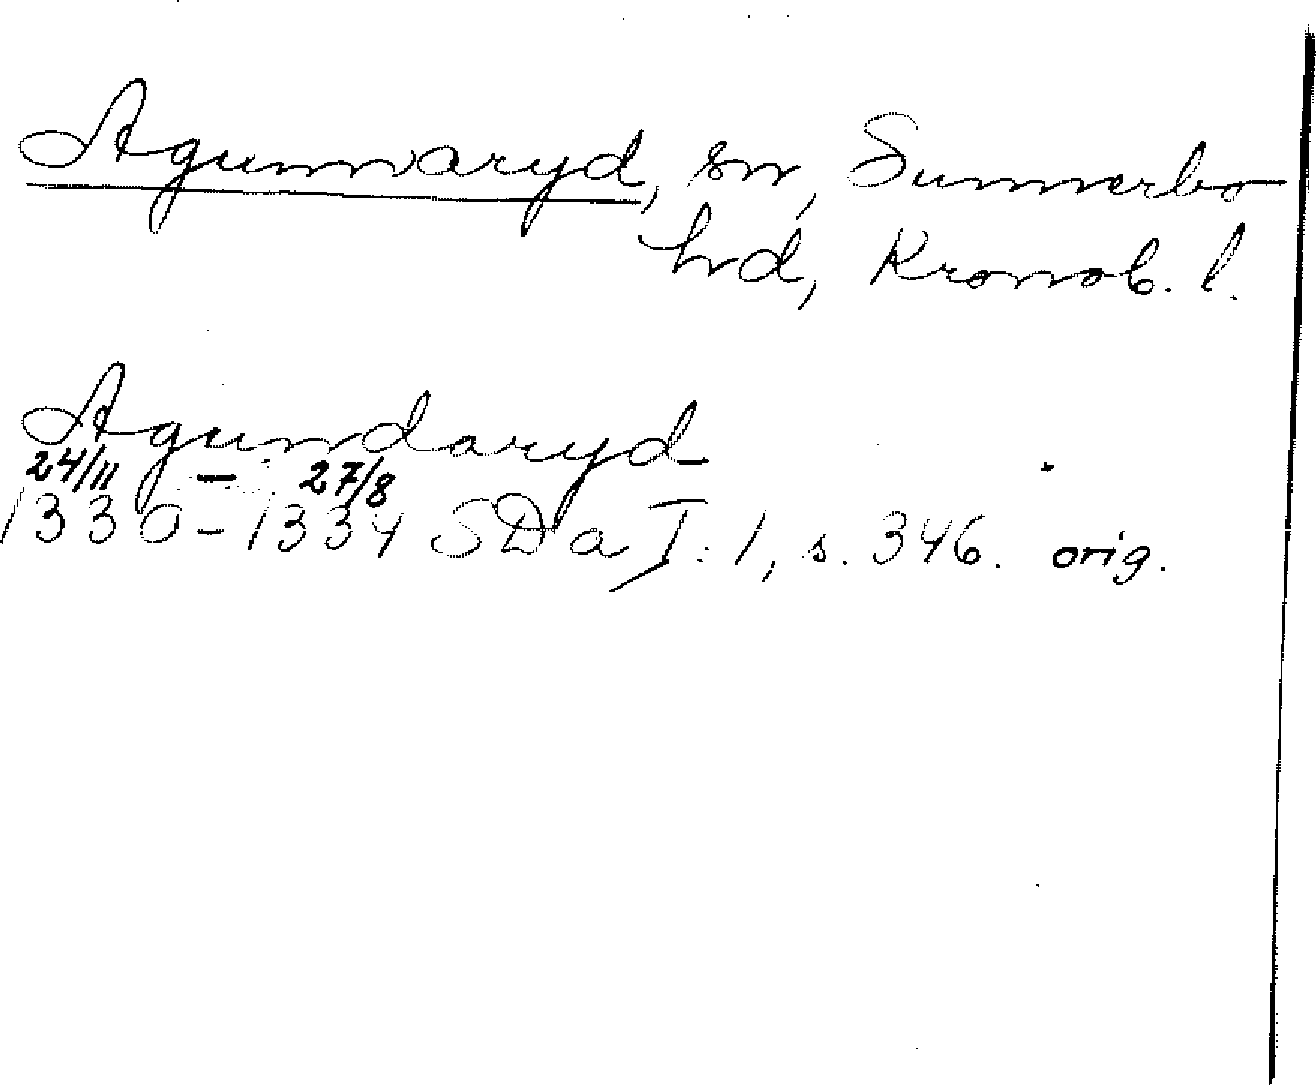 Agunnaryd, sn, Sunnerbo
hd, Kronob. l.
Agundaryd
24/11 – 27/8
1330–1334 SDa I:1, s. 346. orig.